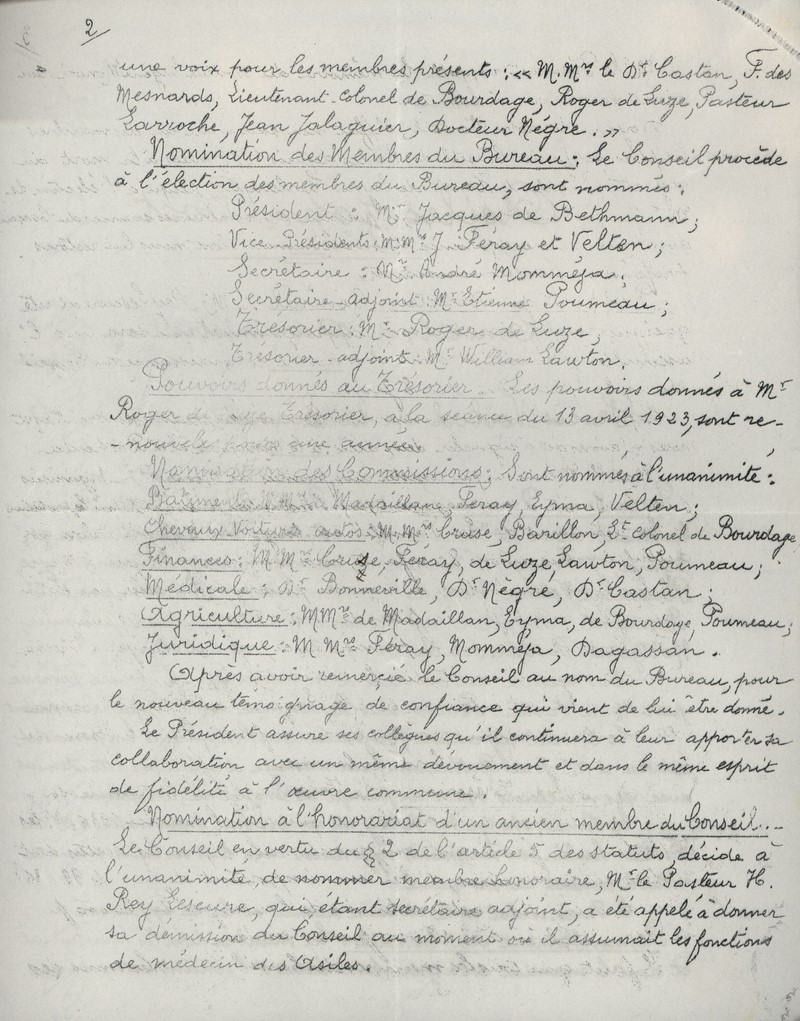 2
une voix pour les membres présents : « M.Mrs le Dr Castan, F. des
Mesnards, Lieutenant-Colonel de Bourdage, Roger de Luze, Pasteur
Larroche, Jean Jalaguier, Docteur Nègre. »
Nomination des Membres du Bureau : Le Conseil procède
à l'élection des membres du Bureau, sont nommés :
Président : Mr Jacques de Bethmann ;
Vice-Présidents : M.Mrs J. Féray et Velten ;
Secrétaire : Mr André Momméja ;
Secrétaire-adjoint : Mr Etienne Poumeau ;
Trésorier : Mr Roger de Luze ;
Trésorier-adjoint : Mr William Lawton.
Pouvoirs donnés au Trésorier. Les pouvoirs donnés à Mr
Roger de Luze Trésorier, à la séance du 13 avril 1923, sont re-
-nouvelés pour une année.
Nomination des Commissions : Sont nommés à l'unanimité :
Bâtiments : M.Mrs Madaillan, Féray, Eyma, Velten ;
Chevaux Voitures autos : M.Mrs Cruse, Barillon, Lt colonel de Bourdage
Finances : M Mrs Cruse, Féray, de Luze, Lawton, Poumeau ;
Médicale : Dr Bonneville, Dr Nègre, Dr Castan ;
Agriculture : MMrs de Madaillan, Eyma, de Bourdage, Poumeau ;
Juridique : M Mrs Féray, Momméja, Dagassan.
Après avoir remercié le Conseil au nom du Bureau, pour
le nouveau témoignage de confiance qui vient de lui être donné.
Le Président assure ses collègues qu'il continuera à leur apporter sa
collaboration avec un même dévouement et dans le même esprit
de fidélité à l'œuvre commune.
Nomination à l'honorariat d'un ancien membre du Conseil..-
Le Conseil en vertu du § 2 de l'article 5 des statuts, décide à
l'unanimité, de nommer membre honoraire, Mr le Pasteur H.
Rey Lescure, qui, étant secrétaire adjoint, a été appelé à donner
sa démission du Conseil au moment où il assumait les fonctions
de médecin des Asiles.